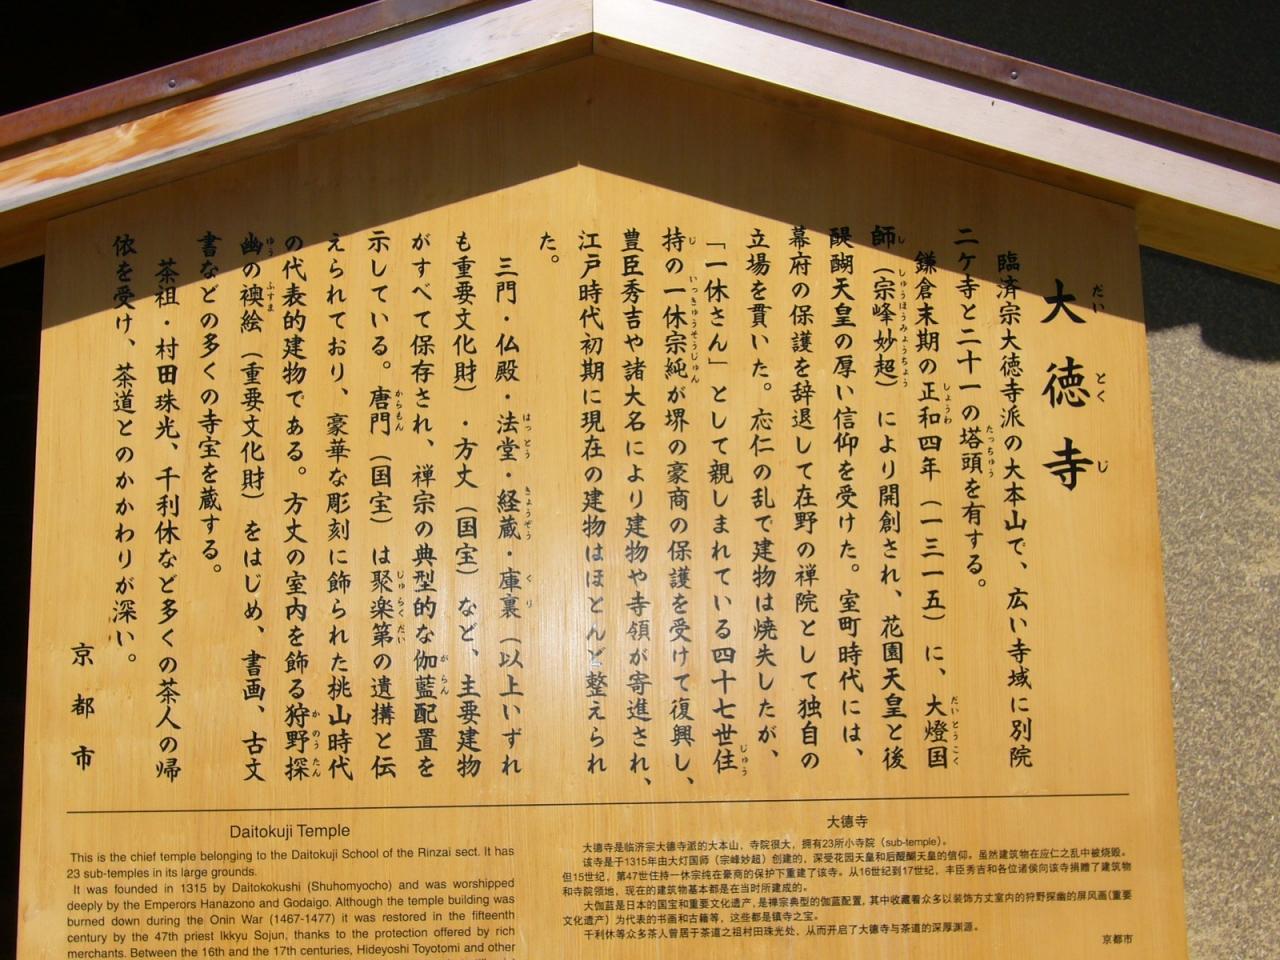 大徳寺
臨済宗大徳寺派の大本山で、広い寺域に別院
二ケ寺と二十一の塔頭を有する。
鎌倉末期の正和四年（一三一五）に、大燈国
師（宗峰妙超）により開創され、花園天皇と後
醍醐天皇の厚い信仰を受けた。室町時代には、
幕府の保護を辞退して在野の禅院として独自の
立場を貫いた。応仁の乱で建物は焼失したが、
「一休さん」として親しまれている四十七世住
持の一休宗純が堺の豪商の保護を受けて復興し、
豊臣秀吉や諸大名により建物や寺領が寄進され、
江戸時代初期に現在の建物はほとんど整えられ
た。
三門・仏殿・法堂・経蔵・庫裏（以上いずれ
も重要文化財）・方丈（国宝）など、主要建物
がすべて保存され、禅宗の典型的な伽藍配置を
示している。唐門（国宝）は聚楽第の遺搆と伝
えられており、豪華な彫刻に飾られた桃山時代
の代表的建物である。方丈の室内を飾る狩野探
幽の襖絵（重要文化財）をはじめ、書画、古文
書などの多くの寺宝を蔵する。
茶祖・村田珠光、千利休など多くの茶人の帰
依を受け、茶道とのかかわりが深い。
京都市
Daitokuji Temple
This is the chief temple belonging to the Daitokuji School of the Rinzai sect. It has
23 sub-temples in its large grounds.
It was founded in 1315 by Daitokokushi (Shuhomyocho) and was worshipped
deeply by the Emperors Hanazono and Godaigo. Although the temple building was
burned down during the Onin War (1467-1477) it was restored in the fifteenth
century by the 47th priest Ikkyu Sojun, thanks to the protection offered by rich
merchants. Between the 16th and the 17th centuries, Hideyoshi Toyotomi and other
大德寺
大德寺是临济宗大德寺派的大本山，寺院很大，拥有23所小寺院（sub-temple）。
该寺是于1315年由大灯国师（宗峰妙超）创建的，深受花园天皇和后醍醐天皇的信仰。虽然建筑物在应仁之乱中被烧毁。
但15世纪，第47世住持一休宗纯在豪商的保护下重建了该寺。从16世纪到17世纪，丰臣秀吉和各位诸侯向该寺捐赠了建筑物
和寺院领地，现在的建筑物基本都是在当时所建成的。
大伽蓝是日本的国宝和重要文化遗产，是禅宗典型的伽蓝配置，其中收藏着众多以装饰方丈室内的狩野探幽的屏风画(重要
文化遗产）为代表的书画和古籍等，这些都是镇寺之宝。
千利休等众多茶人曾居于茶道之祖村田珠光处，从而开启了大德寺与茶道的深厚渊源。
京都市